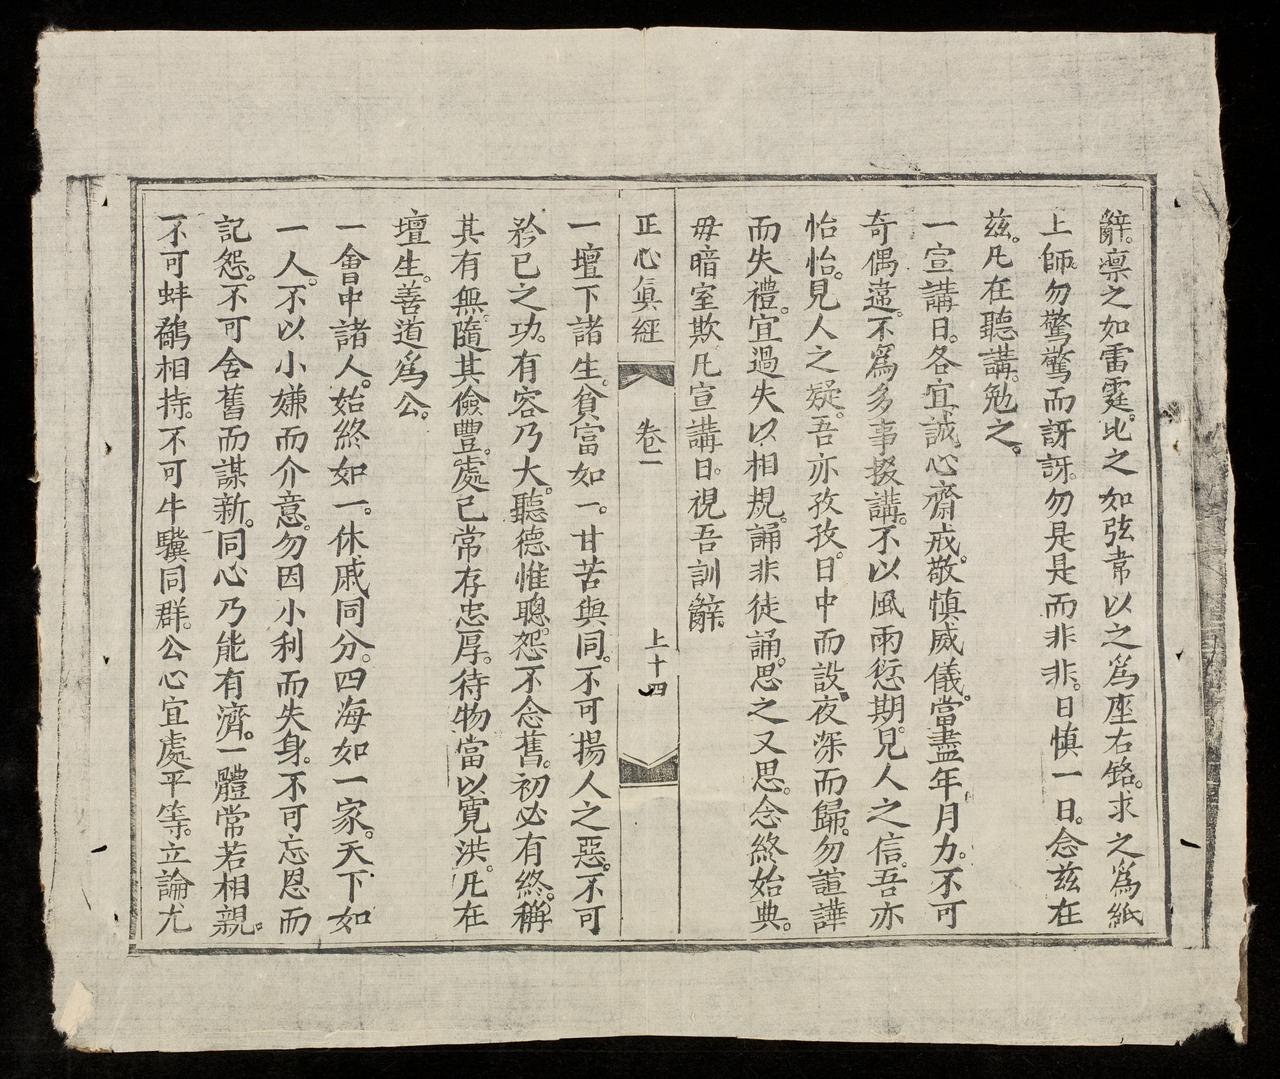 辭。凛之如雷霆。比之如弦韋以之爲座右銘。求之爲紙
上師勿驚驚而訝訝。勿是是而非非。日慎一日。念兹在
兹。凡在聽講。勉之。
一宣講日。各宜誠心齋戒。敬慎威儀。當盡年月力。不可
奇偶違。不爲多事掇講。不以風雨愆期。見人之信。吾亦
怡怡。見人之疑。吾亦孜孜。日中而設。夜深而歸。勿諠譁
而失禮。宜過失以相規。誦非徒誦。思之又思。念終始典。
毋暗室欺凡宣講日。視吾訓辭。
正心眞經
卷一
上十四
一壇下諸生。貧富如一。甘苦與同。不可揚人之惡。不可
矜已之功。有容乃大。聽德惟聰。怨不念舊。初必有終。稱
其有無。隨其儉豐。處已常存忠厚。待物當以寬洪。凡在
壇生。善道爲公。
一會中諸人。始終如一。休戚同分。四海如一家。天下如
一人。不以小嫌而介意。勿因小利而失身。不可忘恩而
記怨。不可舍舊而謀新。同心乃能有濟。一體常若相親。
不可蚌鷸相持。不可牛驥同群。公心宜處平等。立論尤